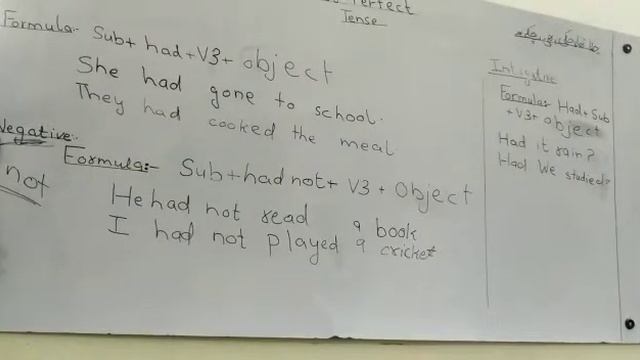 Perfect
Tense
Formula:- Sub+ had+V3+ object
She had gone to school.
They had cooked the meal
Negative:-
Formula:- Sub+had not+ V3 + Object
not
He had not read a book
I had not played a cricket
Formula:- Had+Sub
+V3+ object
Had it rain?
Had We studied?